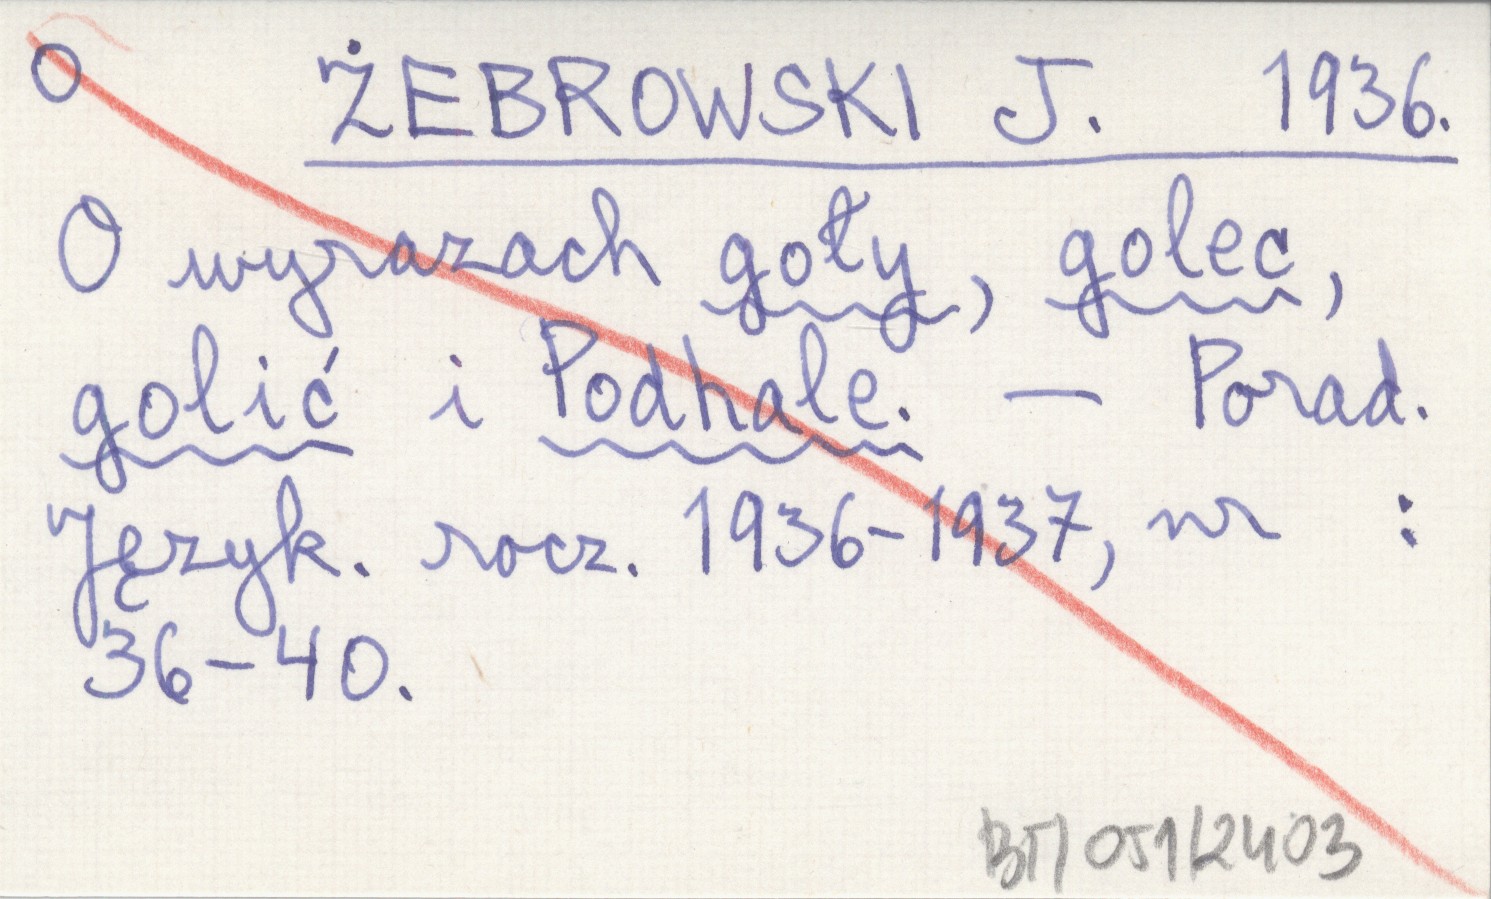 O ŻEBROWSKI J. 1936.
O wyrazach goły, golec,
golić i Podhale. — Porad.
Język. rocz. 1936-1937, nr :
36-40.
BT/051/2403